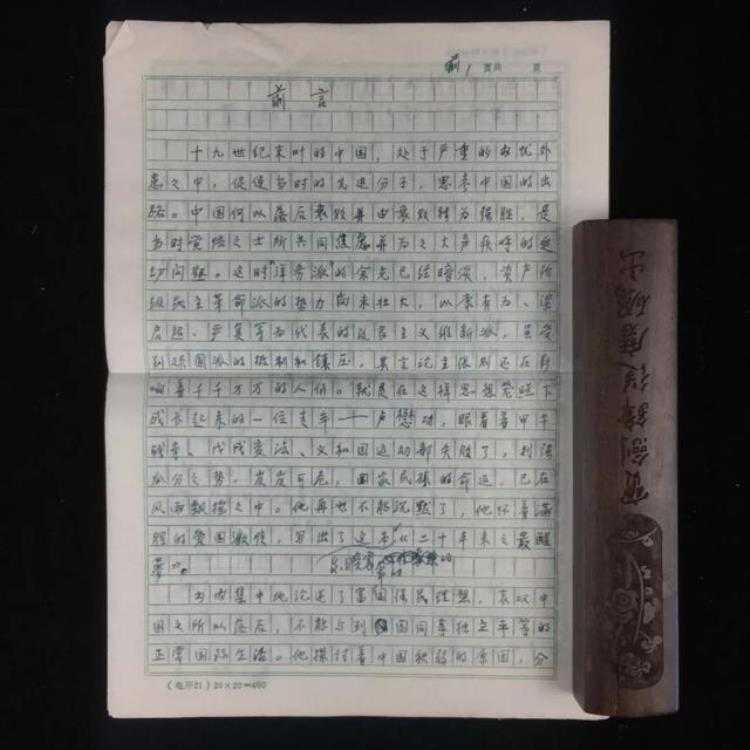 前1 页共 页
前言
十九世纪末叶的中国，处于严重的内忧外
患之中，促使当时的先进分子，思考中国的出
路。中国何以落后衰败并由衰败转为强胜，是
当时爱国之士所共同焦虑并为之大声疾呼的迫
切问题。这时“洋务派”的余光已经暗淡，资产阶
级民主革命派的势力尚未壮大，以康有为、梁
启超、严复等为代表的改良主义维新派，虽受
到顽固派的抵制和镇压，其言论主张则还在影
响着千千万万的人们。就是在这样思想笼照下
成长起来的一位青年——卢懋功，眼看着甲午
战争、戊戌变法、义和团运动都失败了，列强
瓜分之势，岌岌可危，国家民族的命运，已在
风雨飘摇之中。他再也不能沉默了，他怀着满
腔的爱国激情，写出了这本《二十年来之最醒
梦》。
书中集中地论述了富国强民理想，哀叹中
国之所以落后，不能与列国同等独立平等的
正常国际生活。他探讨着中国积弱的原因，分
（电开21）20×20=400
宝剑锋从磨砺出